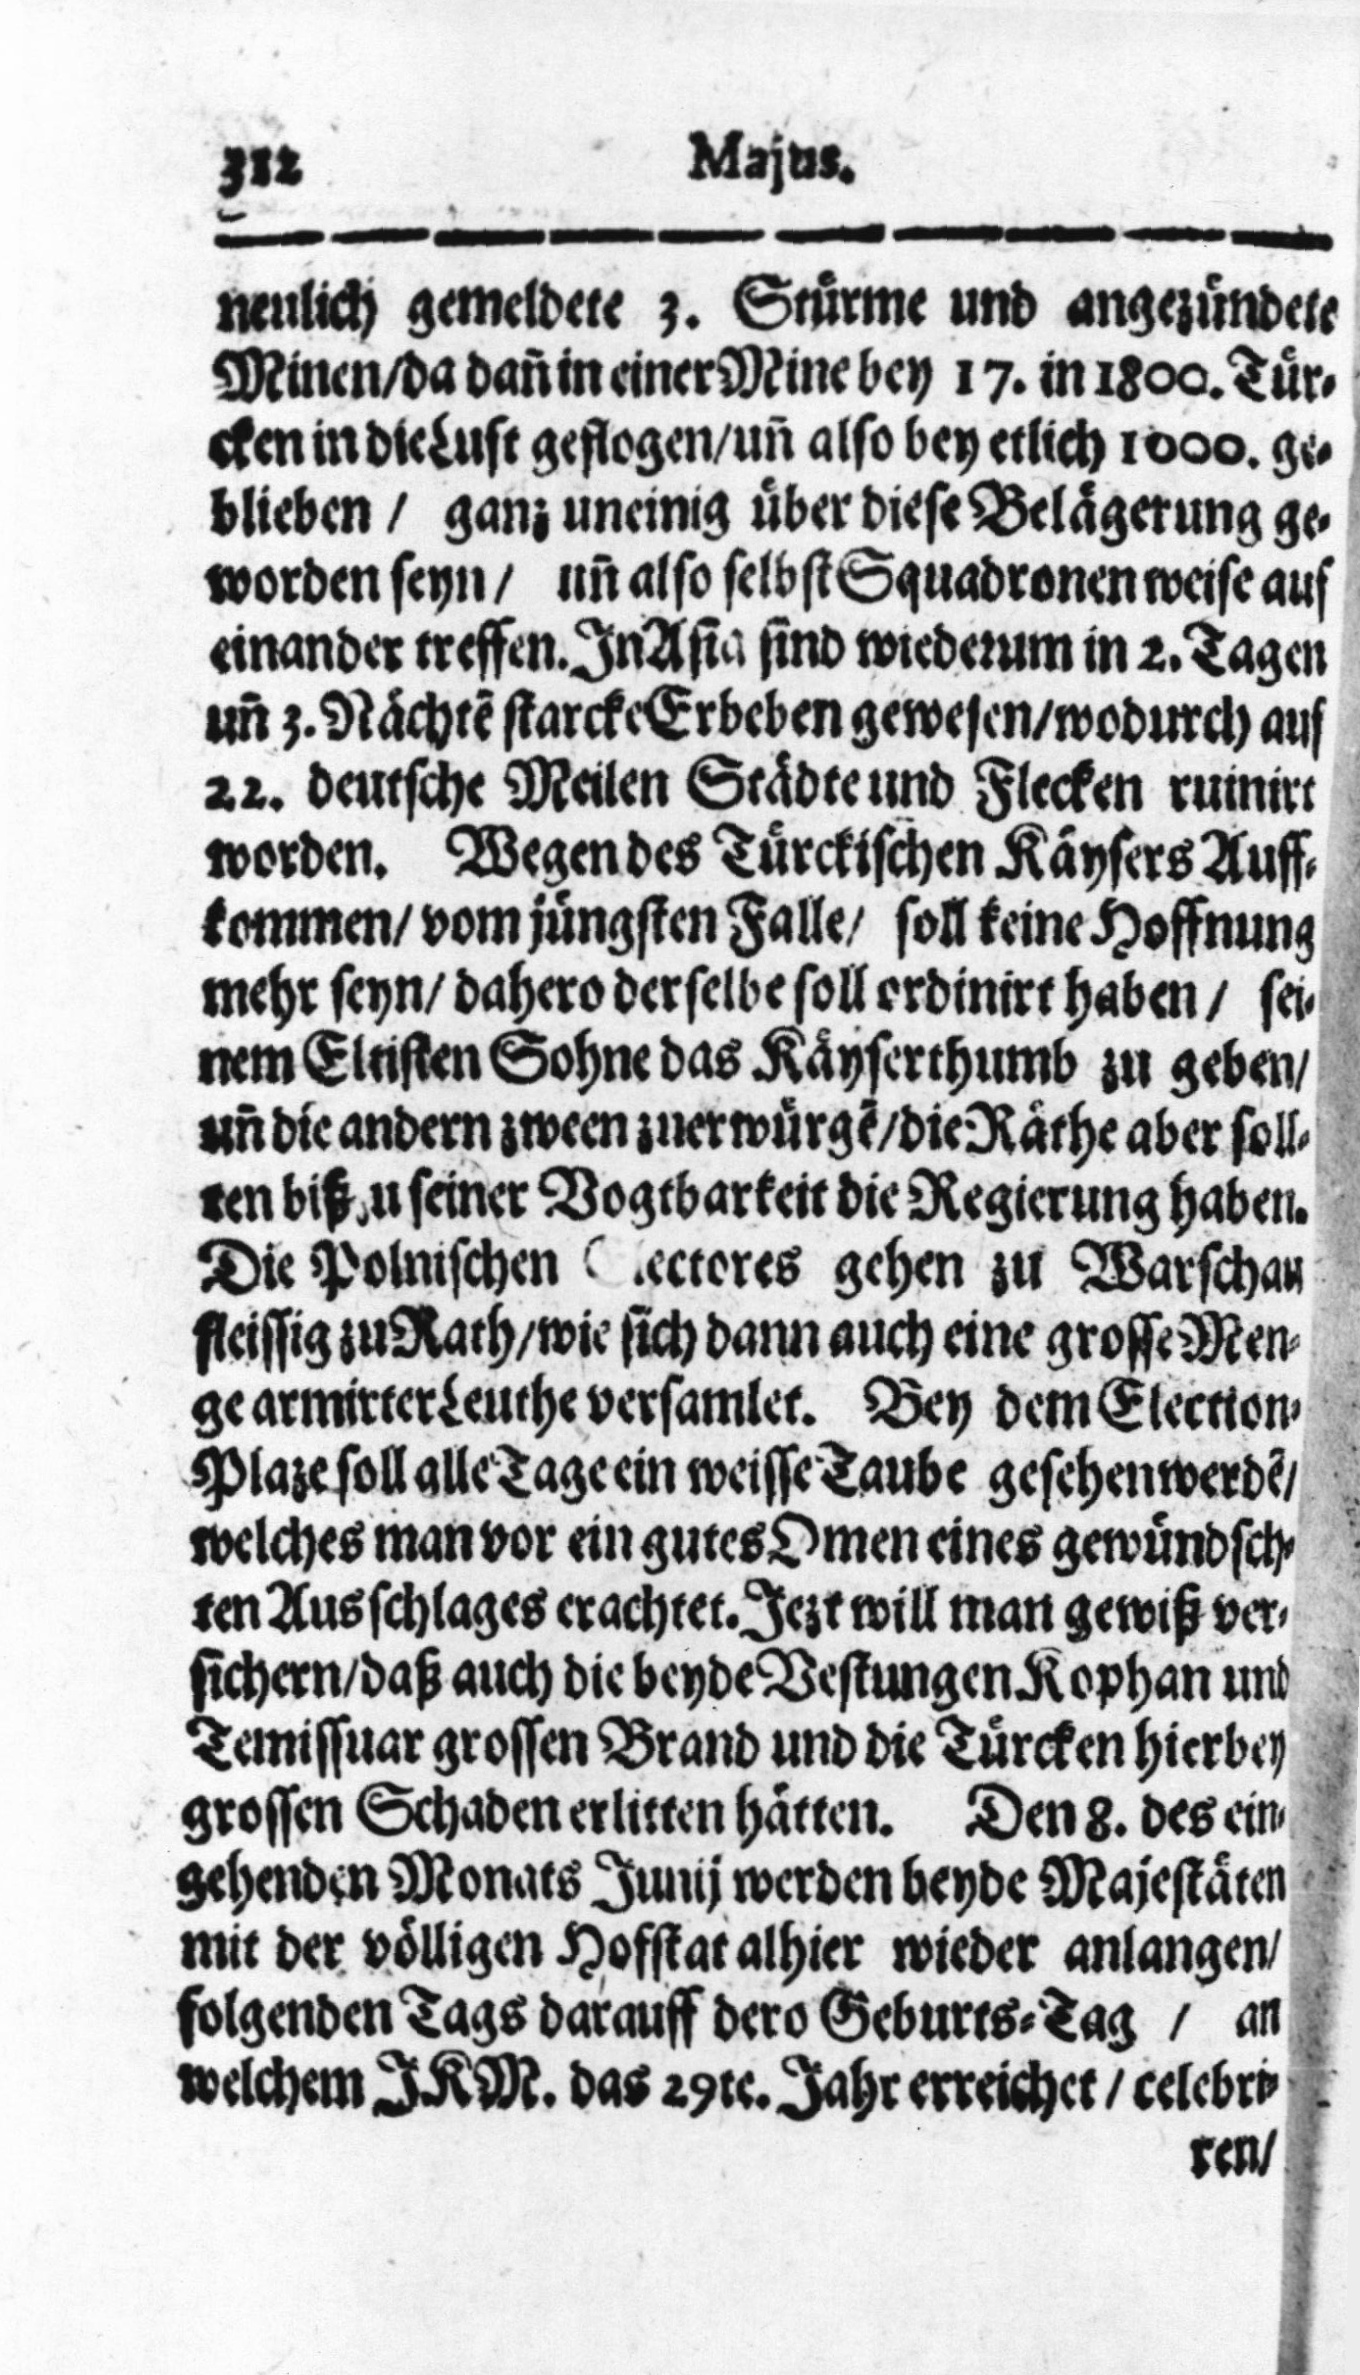 312 Majus.
neulich gemeldete 3. Stürme und angezündete
Minen/da dañ in einer Mine bey 17. in 1800. Tür-
cken in die Lufft geflogen/uñ also bey etlich 1000. ge-
blieben / ganz uneinig über diese Belägerung ge-
worden seyn / uñ also selbst Squadronen weise auf
einander treffen. In Asia sind wiederum in 2. Tagen
uñ 3. Nächtē starcke Erbeben gewesen/wodurch auf
22. deutsche Meilen Städte und Flecken ruinirt
worden. Wegen des Türckischen Käysers Auff-
kommen/ vom jüngsten Falle/ soll keine Hoffnung
mehr seyn/ dahero derselbe soll ordinirt haben / sei-
nem Eltisten Sohne das Käyserthumb zu geben/
uñ die andern zween zu erwürgē/die Räthe aber soll-
ten biß zu seiner Vogtbarkeit die Regierung haben.
Die Polnischen gehen zu Warschau
fleissig zu Rath/wie sich dann auch eine grosse Men-
ge armirter Leuthe versamlet. Bey dem Election-
Plaze soll alle Tage ein weisse Taube gesehen werdē/
welches man vor ein gutes Omen eines gewündsch-
ten Ausschlages erachtet. Jezt will man gewiß ver-
sichern/daß auch die beyde Vestungen Kophan und
Temissuar grossen Brand und die Türcken hierbey
grossen Schaden erlitten hätten. Den 8. des ein-
gehenden Monats Junij werden beyde Majestäten
mit der völligen Hofstat alhier wieder anlangen/
folgenden Tags darauff dero Geburts-Tag / an
welchem J K M. das 29te. Jahr erreichet / celebri-
ren/